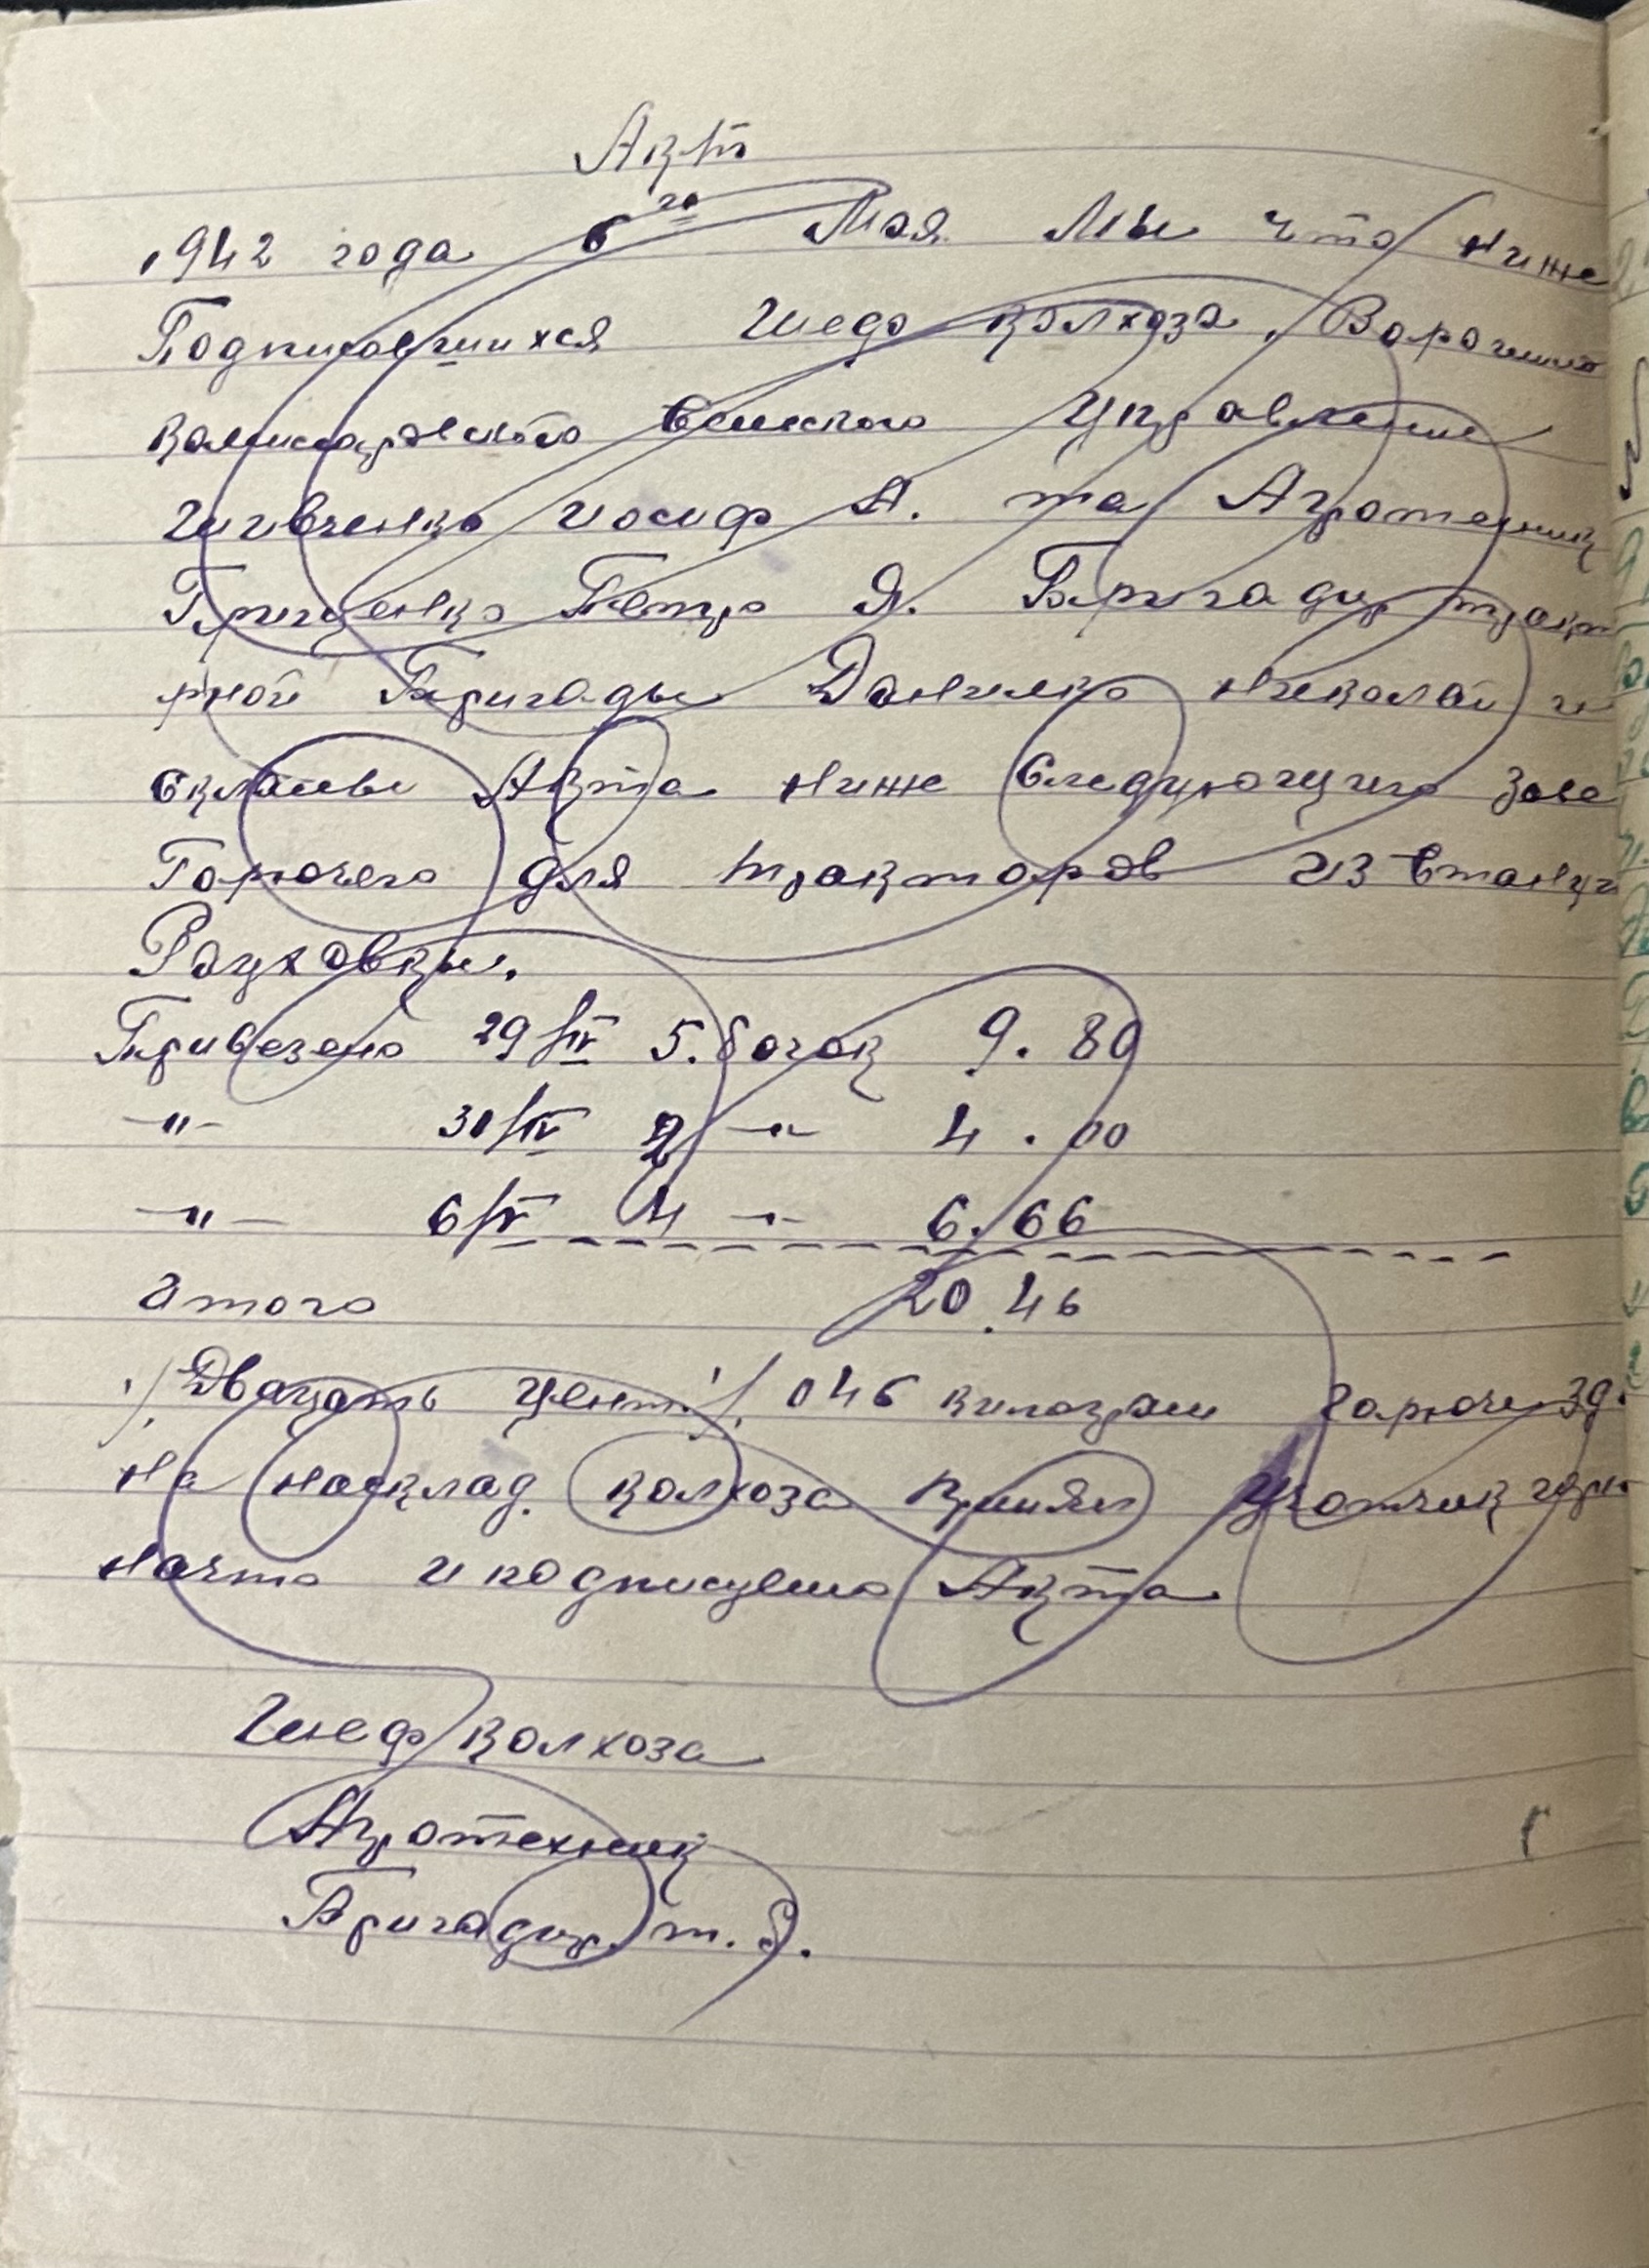 Актъ
1942 года 6го Мая Мы что ниже
Подписовшиихся Шеф колхоза Ворошило
комисаровского Сельского Управление
Шивченко Иосиф А. та Агротехник
Гриценко Петро Я. Бригадир тракт
рной Бригады Данилко Николай и
склали Акта ниже Следующего
Горючего для тракторов из Станци
Раухсовки.
Привезено 29/IV 5. бочок 9. 80
–"– 30/IV 2 –"– 4 . 00
–"– 6/V 4 –"– 6. 66
Итого 20.46
/Двацать цент./ 046 килограм горюче
на насклад колхоза принял Учотчик
начто и подписуемо Акта
Шеф колхоза
Агротехник
Бригадир т. б.